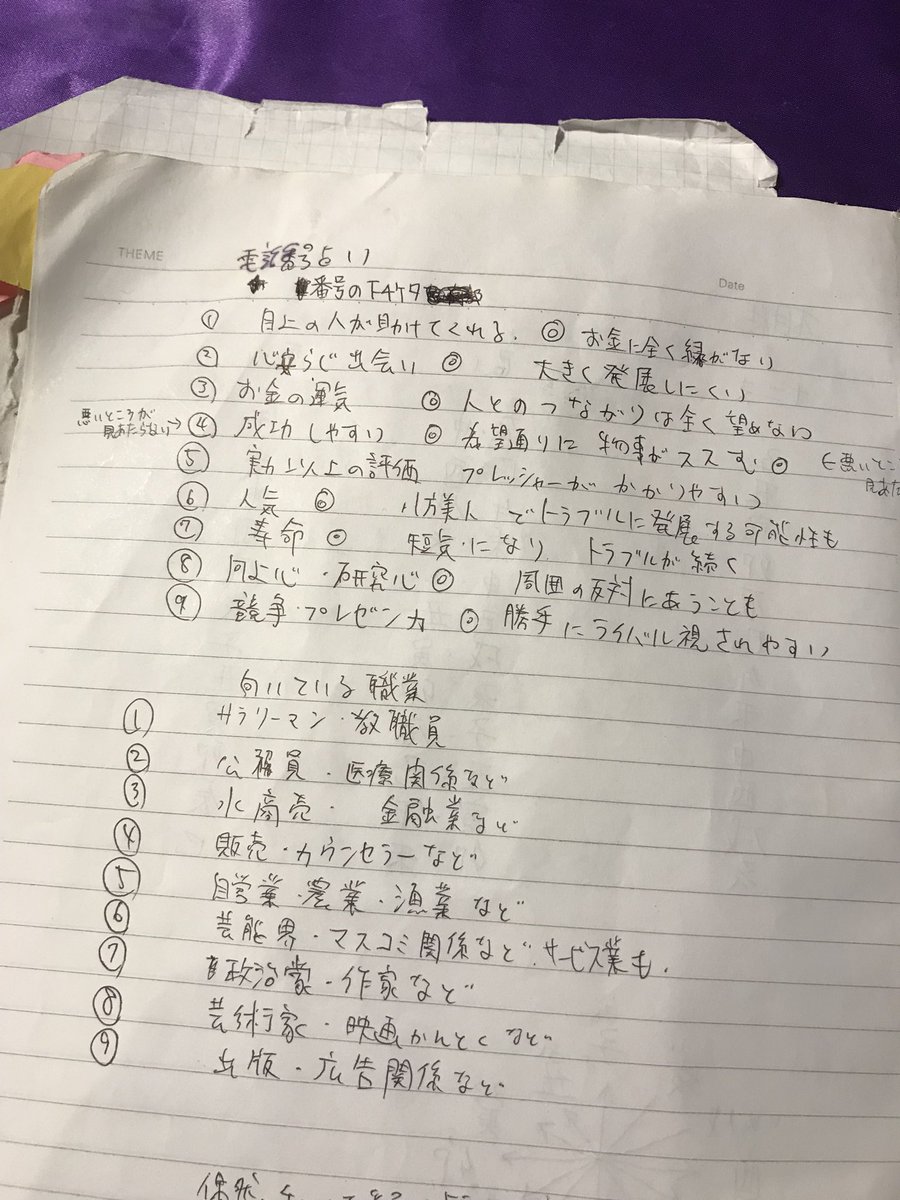 THEME
Date
電話番号占い
番号の下4ケタ
① 目上の人が助けてくれる. ◎ お金に全く縁がない
② 心安らぐ出会い ◎ 大きく発展しにくい
③ お金の運気 ◎ 人とのつながりは全く望めない
悪いところが
見あたらない→ ④ 成功しやすい ◎ 希望通りに物事がススむ ◎ ←悪いとこ
見あた
⑤ 実力以上の評価 プレッシャーがかかりやすい
⑥ 人気 ◎ 八方美人でトラブルに発展する可能性も
⑦ 寿命 ◎ 短気・になり トラブルが続く
⑧ 向上心・研究心 ◎ 周囲の反対にあうことも
⑨ 競争・プレゼン力 ◎ 勝手にライバル視されやすい
向いている職業
① サラリーマン・教職員
② 公務員・医療関係など
③ 水商売・金融業など
④ 販売・カウンセラーなど
⑤ 自営業・農業・漁業など
⑥ 芸能界・マスコミ関係など.サービス業も.
⑦ 政治家・作家など
⑧ 芸術家・映画かんとくなど
⑨ 出版・広告関係など